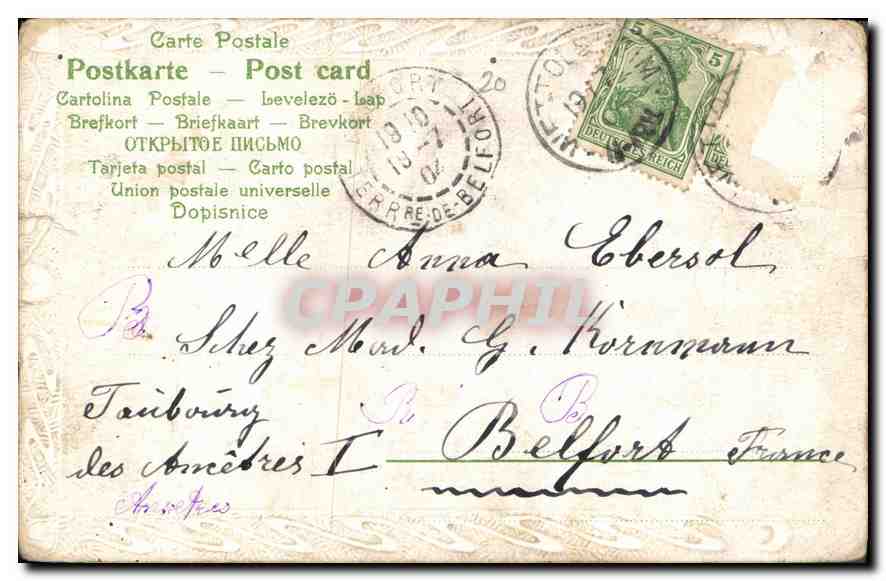 Carte Postale
Postkarte — Post card
Cartolina Postale — Levelező-Lap
Brefkort — Briefkaart — Brevkort
ОТКРЫТОЕ ПИСЬМО
Tarjeta postal — Carto postal
Union postale universelle
Dopisnice
20
5 5
DEUTSCHES REICH
RRE-DE-BELFORT
10
7
04
Melle Anna Ebersol
CPAPHIL
B
Schez Mad. G. Kornmann
Faubourg
B
des Ancêtres I Belfort France